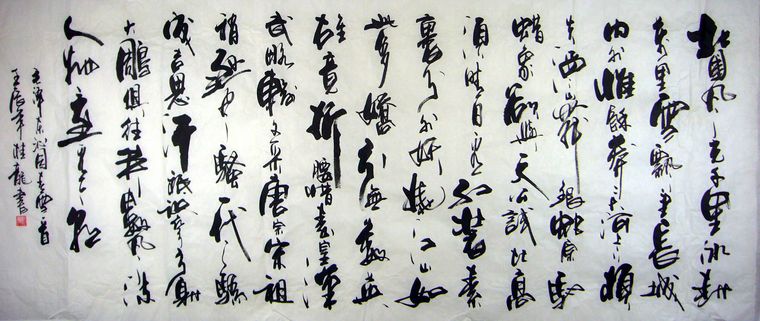 北國風光千里冰封
萬里雪飄望長城
内外惟餘莽莽大河上下頓
失滔滔山舞銀蛇原馳
蜡象欲與天公試比高
須晴日看红裝素
裹分外妖娆江山如
此多嬌引無數英
雄竞折腰惜秦皇漢
武略輸文采唐宗宋祖
稍逊風騷一代天驕
成吉思汗祇識彎弓射
大鵰俱往矣數風流
人物还看今朝
毛澤東沁园春雪一首
壬辰年
龍書